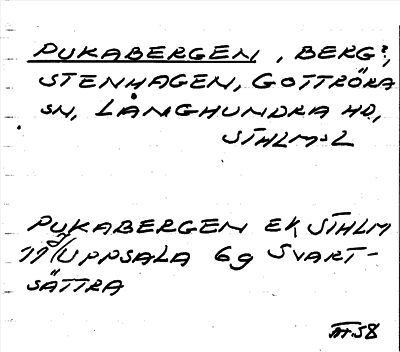 PUKABERGEN, BERG?,
STENHAGEN, GOTTRÖRA
SN, LÅNGHUNDRA HD,
STHLMS L
PUKABERGEN EK STHLM
11I/UPPSALA 6g SVART-
SÄTTRA